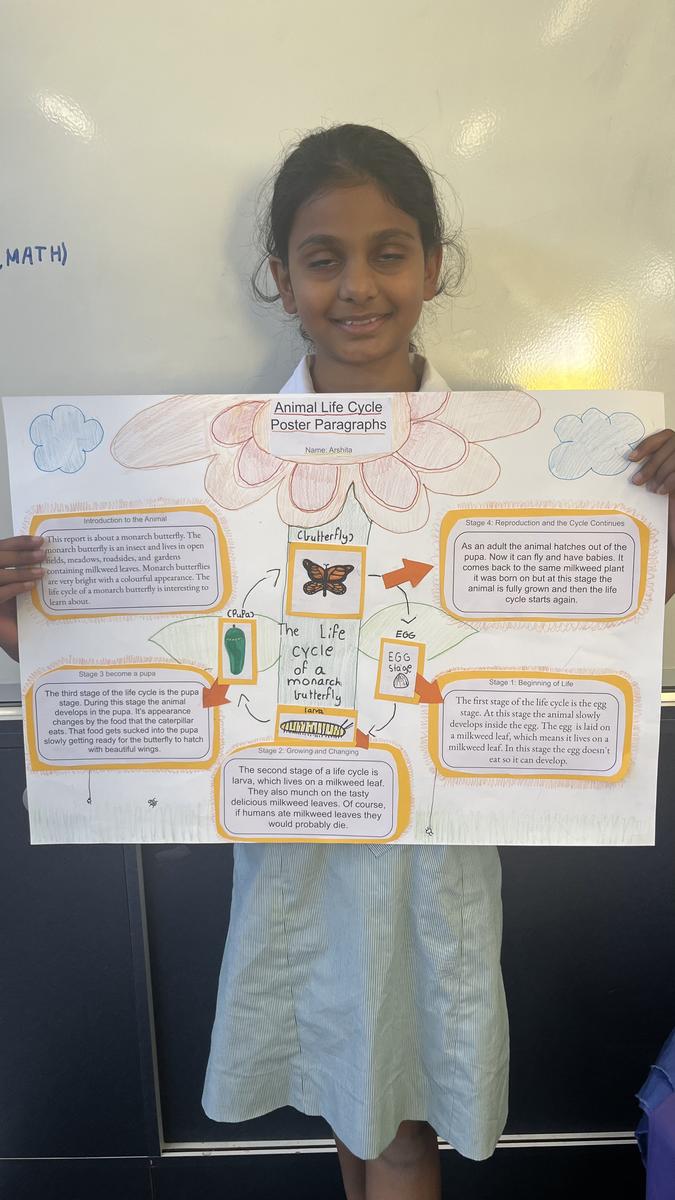 ,MATH)
Animal Life Cycle
Poster Paragraphs
Name: Arshita
Introduction to the Animal
This report is about a monarch butterfly. The
monarch butterfly is an insect and lives in open
fields, meadows, roadsides, and gardens
containing milkweed leaves. Monarch butterflies
are very bright with a colourful appearance. The
life cycle of a monarch butterfly is interesting to
learn about.
(butterfly)
Stage 4: Reproduction and the Cycle Continues
As an adult the animal hatches out of the
pupa. Now it can fly and have babies. It
comes back to the same milkweed plant
it was born on but at this stage the
animal is fully grown and then the life
cycle starts again.
(PuPa)
The Life
cycle
of a
monarch
butterfly
EGG
EGG
stage
Stage 3 become a pupa
The third stage of the life cycle is the pupa
stage. During this stage the animal
develops in the pupa. It's appearance
changes by the food that the caterpillar
eats. That food gets sucked into the pupa
slowly getting ready for the butterfly to hatch
with beautiful wings.
larva
Stage 1: Beginning of Life
The first stage of the life cycle is the egg
stage. At this stage the animal slowly
develops inside the egg. The egg is laid on
a milkweed leaf, which means it lives on a
milkweed leaf. In this stage the egg doesn't
eat so it can develop.
Stage 2: Growing and Changing
The second stage of a life cycle is
larva, which lives on a milkweed leaf.
They also munch on the tasty
delicious milkweed leaves. Of course,
if humans ate milkweed leaves they
would probably die.